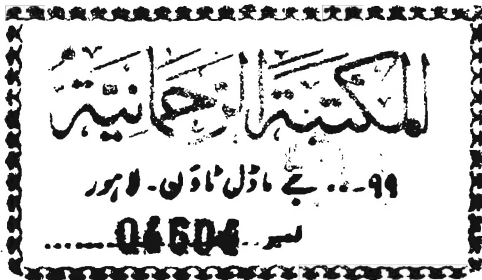 المکتبۃ الرحمانیۃ
۹۹۔۔۔ جے ماڈل ٹاؤن۔ لاہور
نمبر 04604